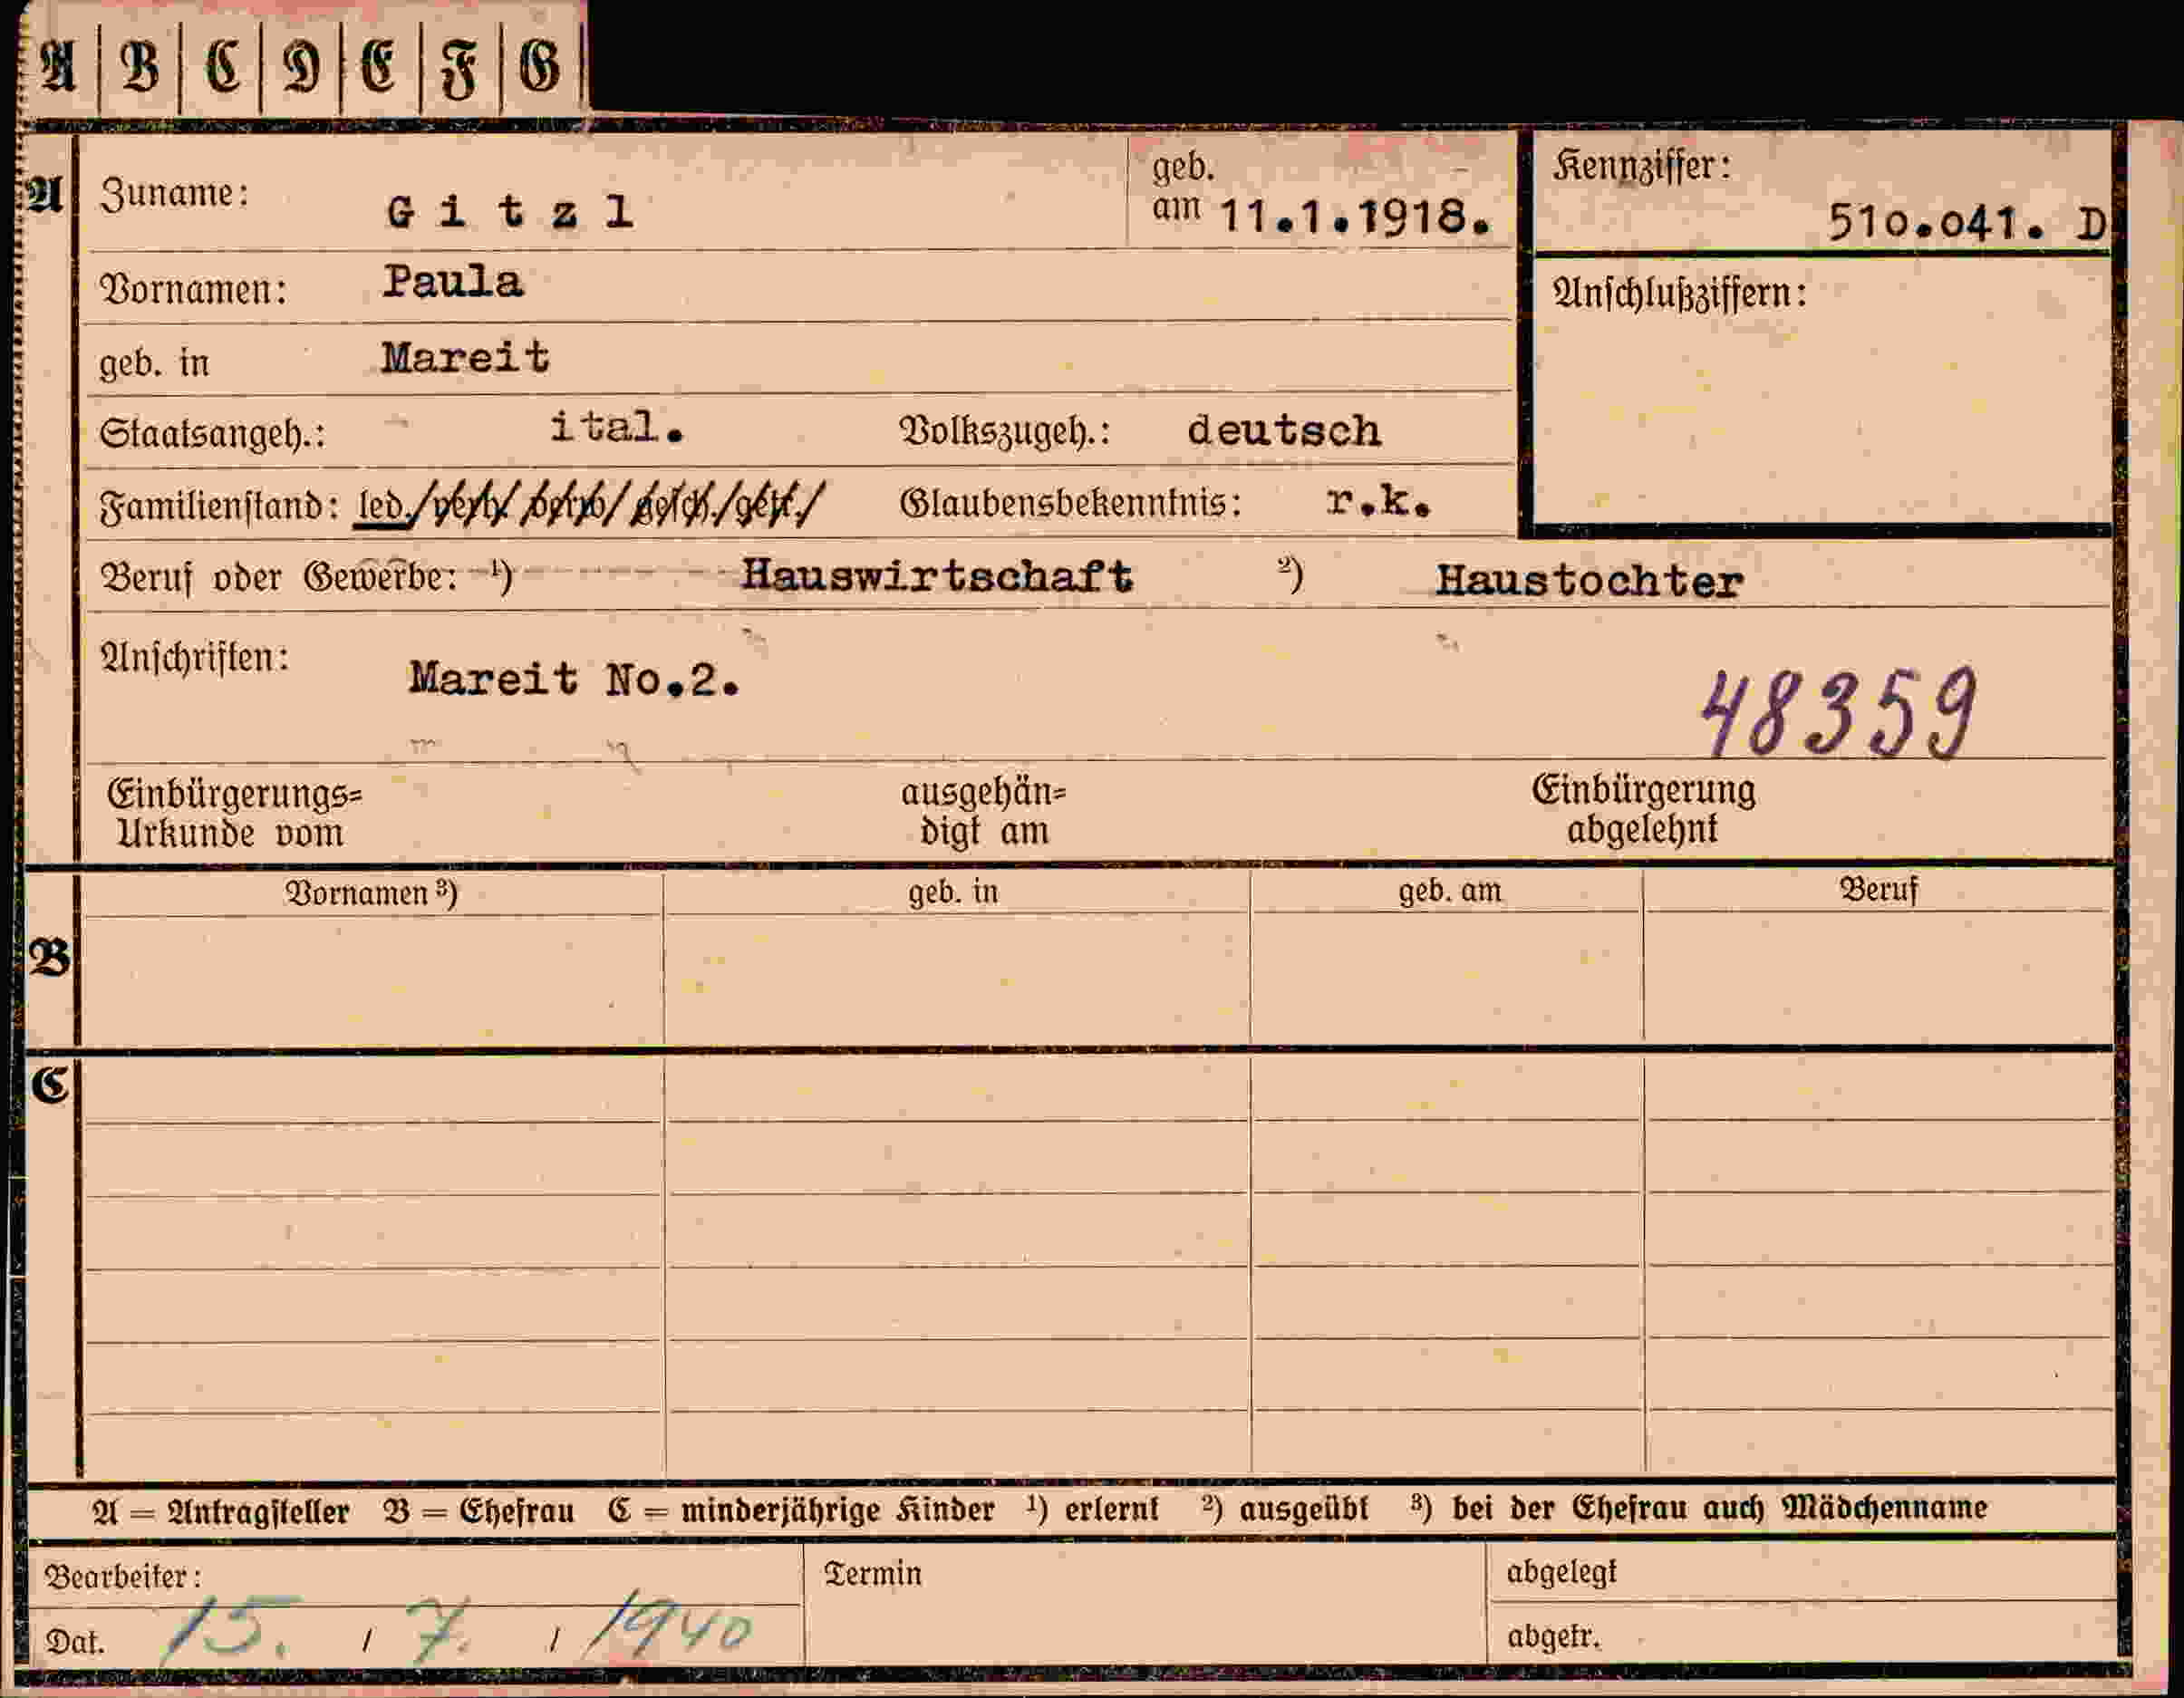 A | B | C | D | E | F | G
A Zuname: Gitzl geb. am 11.1.1918. Kennziffer: 510.041. D
Vornamen: Paula Anschlußziffern:
geb. in Mareit
Staatsangeh.: ital. Volkszugeh.: deutsch
Familienstand: led./verh./verw./gesch./getr./ Glaubensbekenntnis: r.k.
Beruf oder Gewerbe: ¹) Hauswirtschaft ²) Haustochter
Anschriften: Mareit No.2. 48359
Einbürgerungs= ausgehän= Einbürgerung
Urkunde vom digt am abgelehnt
Vornamen ³) geb. in geb. am Beruf
B
C
A = Antragsteller B = Ehefrau C = minderjährige Kinder ¹) erlernt ²) ausgeübt ³) bei der Ehefrau auch Mädchenname
Bearbeiter: Termin abgelegt
Dat. 15. / 7. / 1940 abgetr.